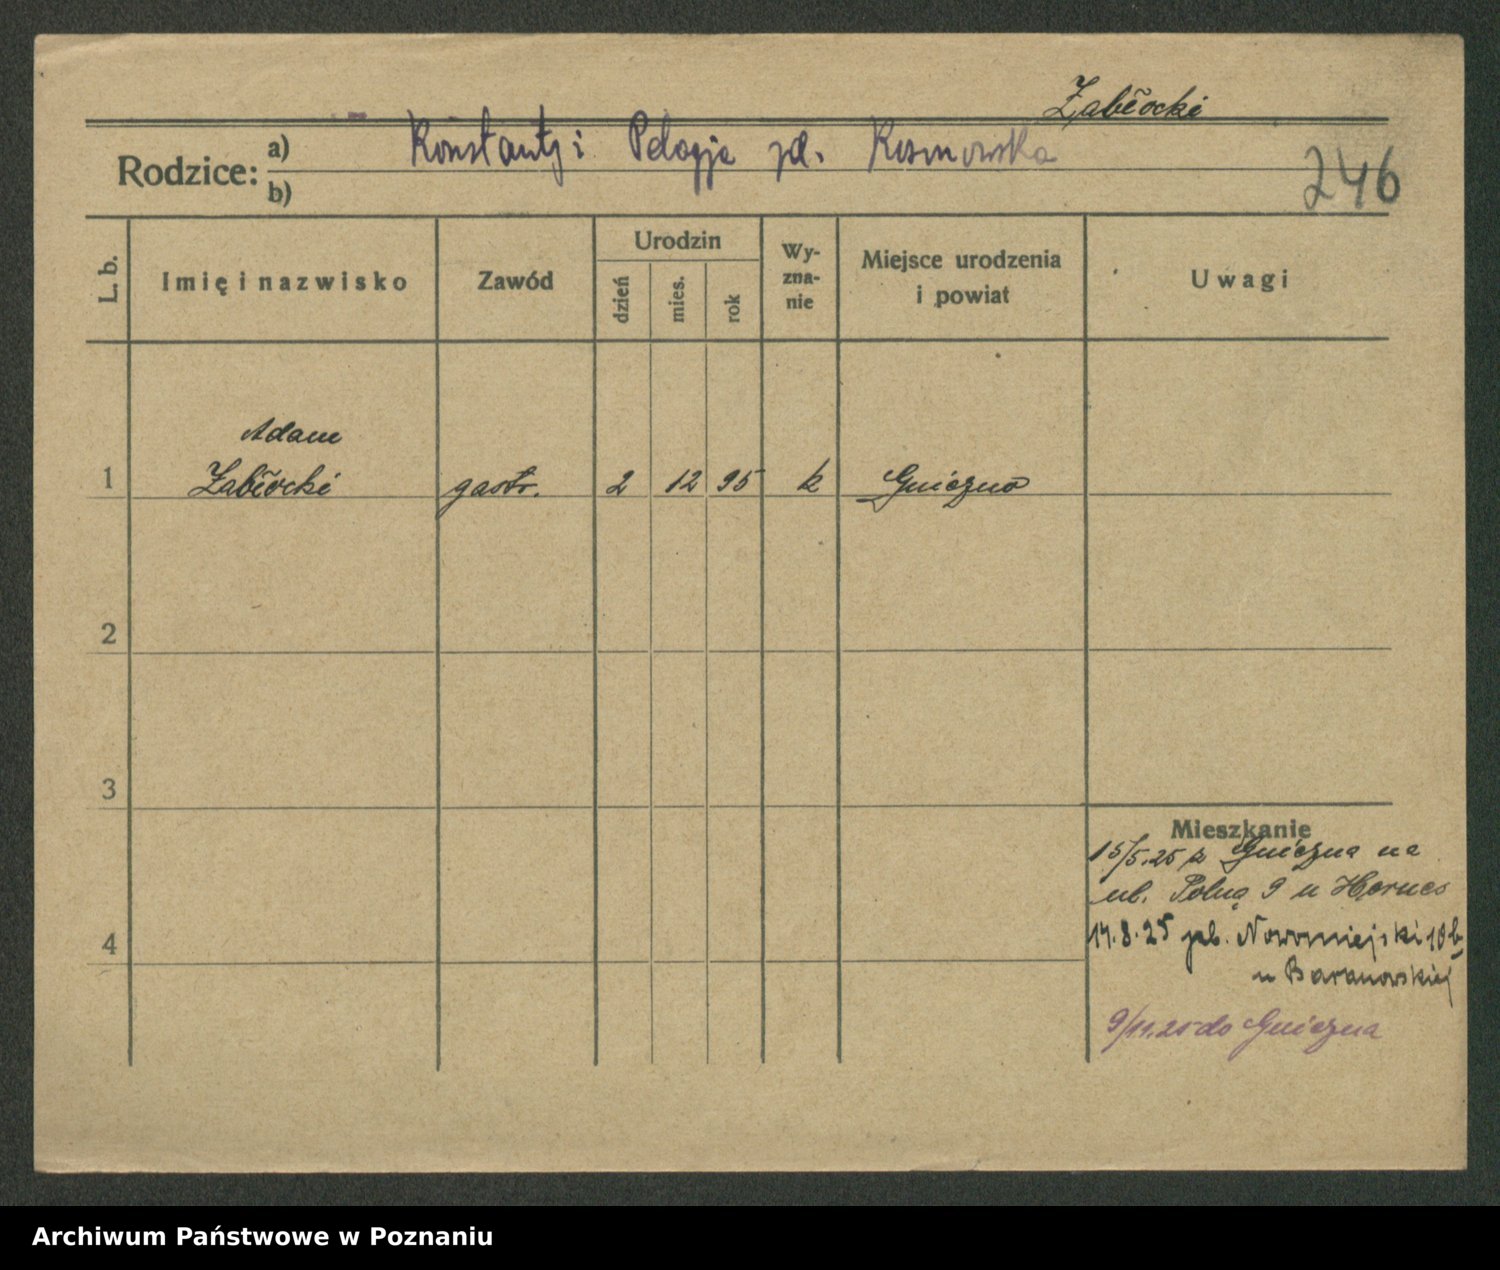 Zabłocki
Rodzice: a) Konstanty i Pelagja zd. Kosmowska
b)
246
L. b.
Imię i nazwisko
Zawód
Urodzin
dzień
mies.
rok
Wy-
zna-
nie
Miejsce urodzenia
i powiat
Uwagi
Adam
1 Zabłocki gastr. 2 12 95 k Gniezno
2
3
4
Mieszkanie
15/5.25 z Gniezna na
ul. Polną 9 u
14.8.25 pl. Nowomiejski 10 b
u Baranowskiej
9/11.25 do Gniezna
Archiwum Państwowe w Poznaniu